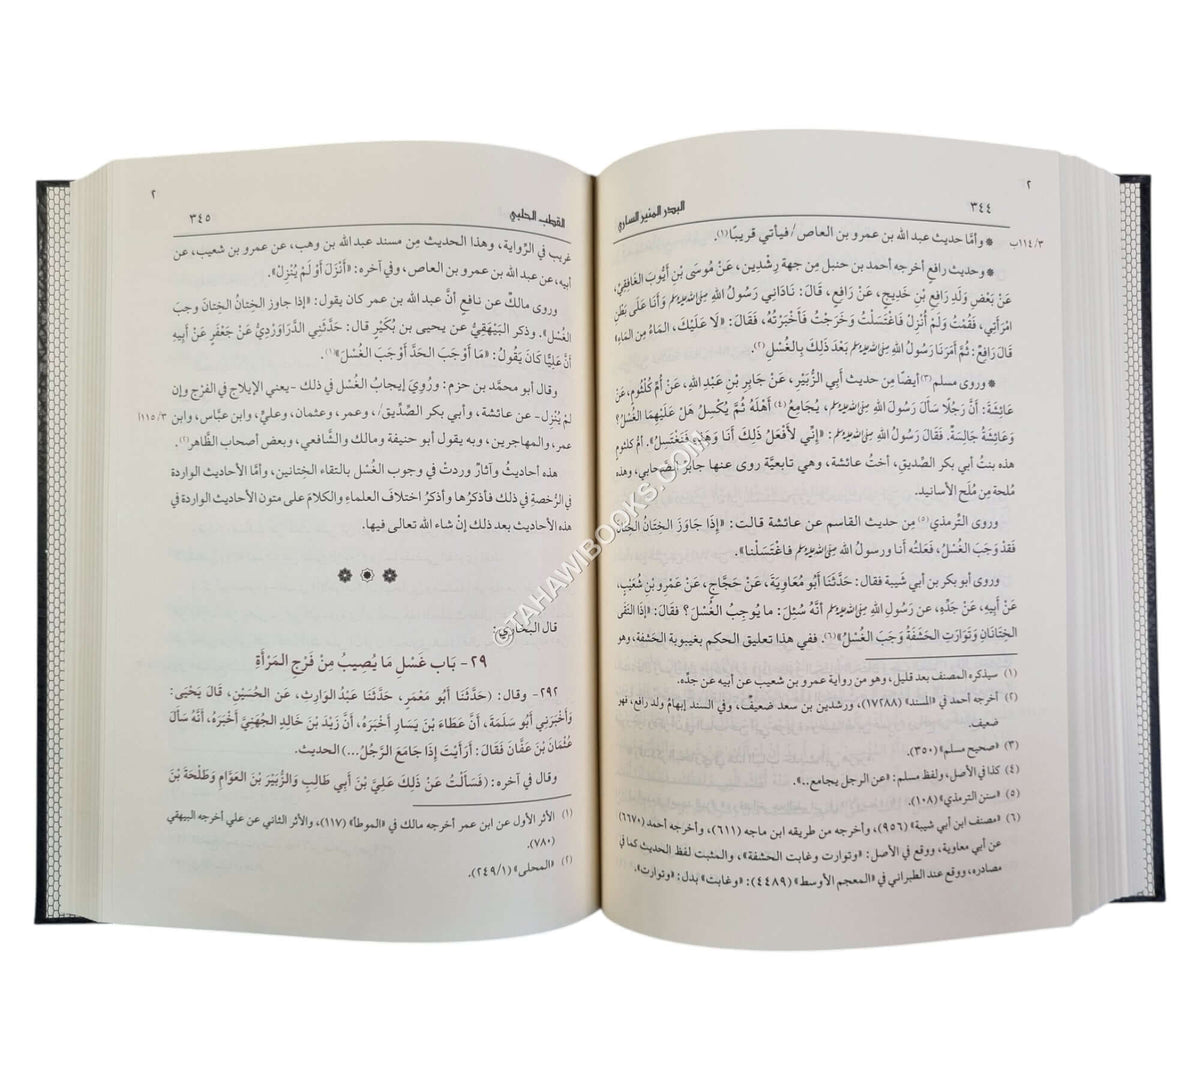 ٢
٣٤٤
البدر المنير الساري
٣/١١٤ب
* وأمَّا حديث عبد الله بن عمرو بن العاص / فيأتي قريبًا(١).
* وحديث رافعٍ أخرجه أحمد بن حنبل مِن جهة رِشْدِين، عَنْ مُوسَى بْنِ أَيُّوبَ الغَافِقِيِّ،
عَنْ بَعْضِ وَلَدِ رَافِعِ بْنِ خَدِيجٍ، عَنْ رَافِعٍ، قَالَ: نَادَانِي رَسُولُ اللهِ ﷺ وَأَنَا عَلَى بَطْنِ
امْرَأَتِي، فَقُمْتُ وَلَمْ أُنْزِلْ فَاغْتَسَلْتُ وَخَرَجْتُ فَأَخْبَرْتُهُ، فَقَالَ: «لَا عَلَيْكَ، المَاءُ مِنَ المَاءِ»
قَالَ رَافِعٌ: ثُمَّ أَمَرَنَا رَسُولُ اللهِ ﷺ بَعْدَ ذَلِكَ بِالغُسْلِ(٢).
* وروى مسلم(٣) أيضًا مِن حديث أبي الزُّبَيْر، عَنْ جَابِرِ بْنِ عَبْدِ اللهِ، عَنْ أُمِّ كُلْثُومٍ، عَنْ
عَائِشَةَ: أَنَّ رَجُلًا سَأَلَ رَسُولَ اللهِ ﷺ، يُجَامِعُ(٤) أَهْلَهُ ثُمَّ يُكْسِلُ هَلْ عَلَيْهِمَا الغُسْلُ؟
وَعَائِشَةُ جَالِسَةٌ. فَقَالَ رَسُولُ اللهِ ﷺ: «إِنِّي لَأَفْعَلُ ذَلِكَ أَنَا وَهَذِهِ فَنَغْتَسِلُ». أمُّ كلثومٍ
هذه بنتُ أبي بكر الصِّديق، أختُ عائشة، وهي تابعيَّة روى عنها جابرٌ الصَّحابي، وهذه
مُلحة مِن مُلَح الأسانيد.
وروى التِّرمذي(٥) مِن حديث القاسم عن عائشة قالت: «إِذَا جَاوَزَ الخِتَانُ الخِتَانَ
فَقَدْ وَجَبَ الغُسْلُ، فَعَلتُه أنا ورسولُ الله ﷺ فاغْتَسَلْنا».
وروى أبو بكر بن أبي شيبة فقال: حَدَّثَنَا أَبُو مُعَاوِيَةَ، عَنْ حَجَّاجٍ، عَنْ عَمْرِو بْنِ شُعَيْبٍ،
عَنْ أَبِيهِ، عَنْ جَدِّهِ، عن رَسُولِ اللهِ ﷺ أنَّهُ سُئِلَ: ما يُوجِبُ الغُسْلَ؟ فقَالَ: «إِذَا التَقَى
الخِتَانَانِ وَتَوَارَتِ الحَشَفَةُ وَجَبَ الغُسْلُ»(٦). ففي هذا تعليق الحكم بغيبوبة الحَشَفة، وهو
(١) سيذكره المصنف بعد قليل، وهو من رواية عمرو بن شعيب عن أبيه عن جدِّه.
(٢) أخرجه أحمد في «المسند» (١٧٢٨٨)، ورشدين بن سعد ضعيفٌ، وفي السند إبهامُ ولد رافع، فهو
ضعيف.
(٣) «صحيح مسلم» (٣٥٠).
(٤) كذا في الأصل، ولفظ مسلم: «عن الرجل يجامع..».
(٥) «سنن الترمذي» (١٠٨).
(٦) «مصنف ابن أبي شيبة» (٩٥٦)، وأخرجه من طريقه ابن ماجه (٦١١)، وأخرجه أحمد (٦٦٧٠)
عن أبي معاوية، ووقع في الأصل: «وتوارت وغابت الحشفة»، والمثبت لفظ الحديث كما في
مصادره، ووقع عند الطبراني في «المعجم الأوسط» (٤٤٨٩): «وغابت» بدل: «وتوارت».
٢
القطب الحلبي
٣٤٥
غريب في الرِّواية، وهذا الحديث مِن مسند عبد الله بن وهب، عن عمرو بن شعيب، عن
أبيه، عن عبد الله بن عمرو بن العاص، وفي آخره: «أَنْزَلَ أَوْ لَمْ يُنْزِلْ».
وروى مالكٌ عن نافع أنَّ عبد الله بن عمر كان يقول: «إذا جاوز الخِتانُ الخِتانَ وجب
الغُسْل». وذكر البَيْهَقِيُّ عن يحيى بن بُكَيْرٍ قال: حَدَّثَنِي الدَّرَاوَرْدِيُّ عَنْ جَعْفَرٍ عَنْ أَبِيهِ
أنَّ عَلِيًّا كَانَ يَقُولُ: «مَا أَوْجَبَ الحَدَّ أَوْجَبَ الغُسْلَ»(١).
وقال أبو محمَّد بن حزم: ورُوِيَ إيجابُ الغُسْل في ذلك - يعني الإيلاج في الفَرْج وإن
لَمْ يُنْزِل - عن عائشة، وأبي بكر الصِّدِّيق/، وعمر، وعثمان، وعليٍّ، وابن عبَّاس، وابن
٣/١١٥أ
عمر، والمهاجرين، وبه يقول أبو حنيفة ومالك والشَّافعي، وبعض أصحاب الظَّاهر(٢).
هذه أحاديثُ وآثارٌ وردتْ في وجوب الغُسْل بالتقاء الخِتانين، وأمَّا الأحاديث الواردة
في الرُّخصةِ في ذلك فأذكرُها وأذكرُ اختلافَ العلماءِ والكلامَ على متونِ الأحاديثِ الواردة في
هذه الأحاديث بعد ذلك إنْ شاء الله تعالى فيها.
قال البُخاري:
٢٩- بَاب غَسْلِ مَا يُصِيبُ مِنْ فَرْجِ المَرْأَةِ
٢٩٢- وقال: (حَدَّثَنَا أَبُو مَعْمَرٍ، حَدَّثَنَا عَبْدُ الوَارِثِ، عَنِ الحُسَيْنِ، قَالَ يَحْيَى:
وَأَخْبَرَنِي أَبُو سَلَمَةَ، أَنَّ عَطَاءَ بْنَ يَسَارٍ أَخْبَرَهُ، أَنَّ زَيْدَ بْنَ خَالِدٍ الجُهَنِيَّ أَخْبَرَهُ، أَنَّهُ سَأَلَ
عُثْمَانَ بْنَ عَفَّانَ فَقَالَ: أَرَأَيْتَ إِذَا جَامَعَ الرَّجُلُ...) الحديث.
وقال في آخره: (فَسَأَلْتُ عَنْ ذَلِكَ عَلِيَّ بْنَ أَبِي طَالِبٍ وَالزُّبَيْرَ بْنَ العَوَّامِ وَطَلْحَةَ بْنَ
(١) الأثر الأول عن ابن عمر أخرجه مالك في «الموطأ» (١١٧)، والأثر الثاني عن علي أخرجه البيهقي
(٧٨٠).
(٢) «المحلى» (٢٤٩/١).
©TAHAWIBOOKS.COM